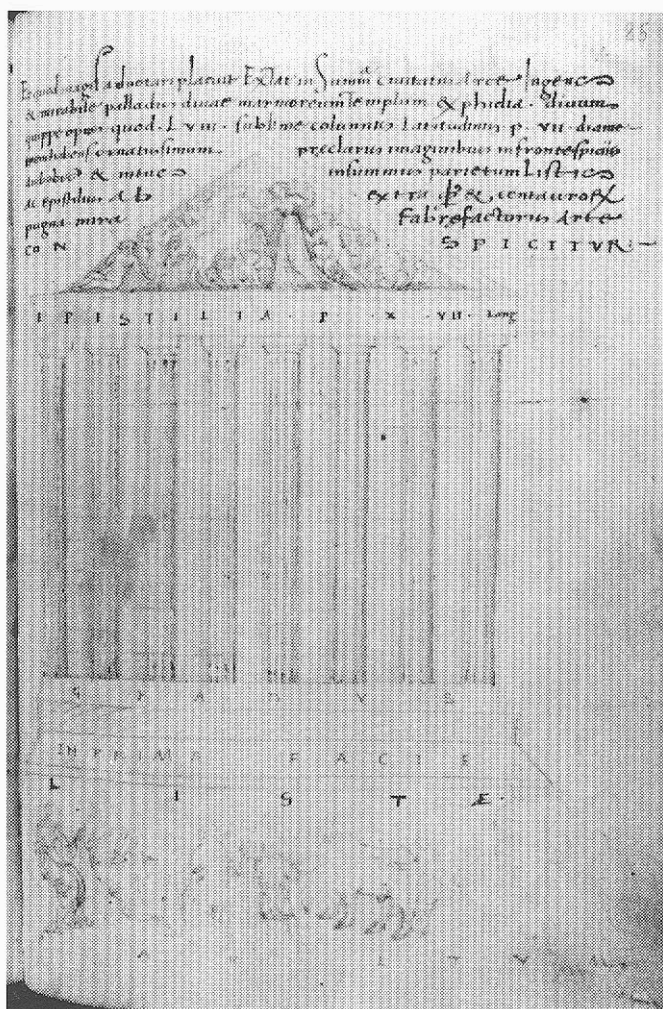 85
Et quod magis adnotari placuit Extat in Summa civitatis Arce Ingens
& mirabile palladis divae marmoreum Templum & phidiae divum
quippe opus quod. L VIII. sublime columnis Latitudinis p. VII. diame-
ornatissimum praeclaris imaginibus in frontespiciis
& intus in summis parietum Listis
Ac epistiliis Ab extra, centauror
pugna mira fabrefactoris Arte
CO N SPICITVR:—
E P I S T I L I A . P . X . VII . Long
G R A D V S
IN PRIMA FACIE
L I S T Æ.